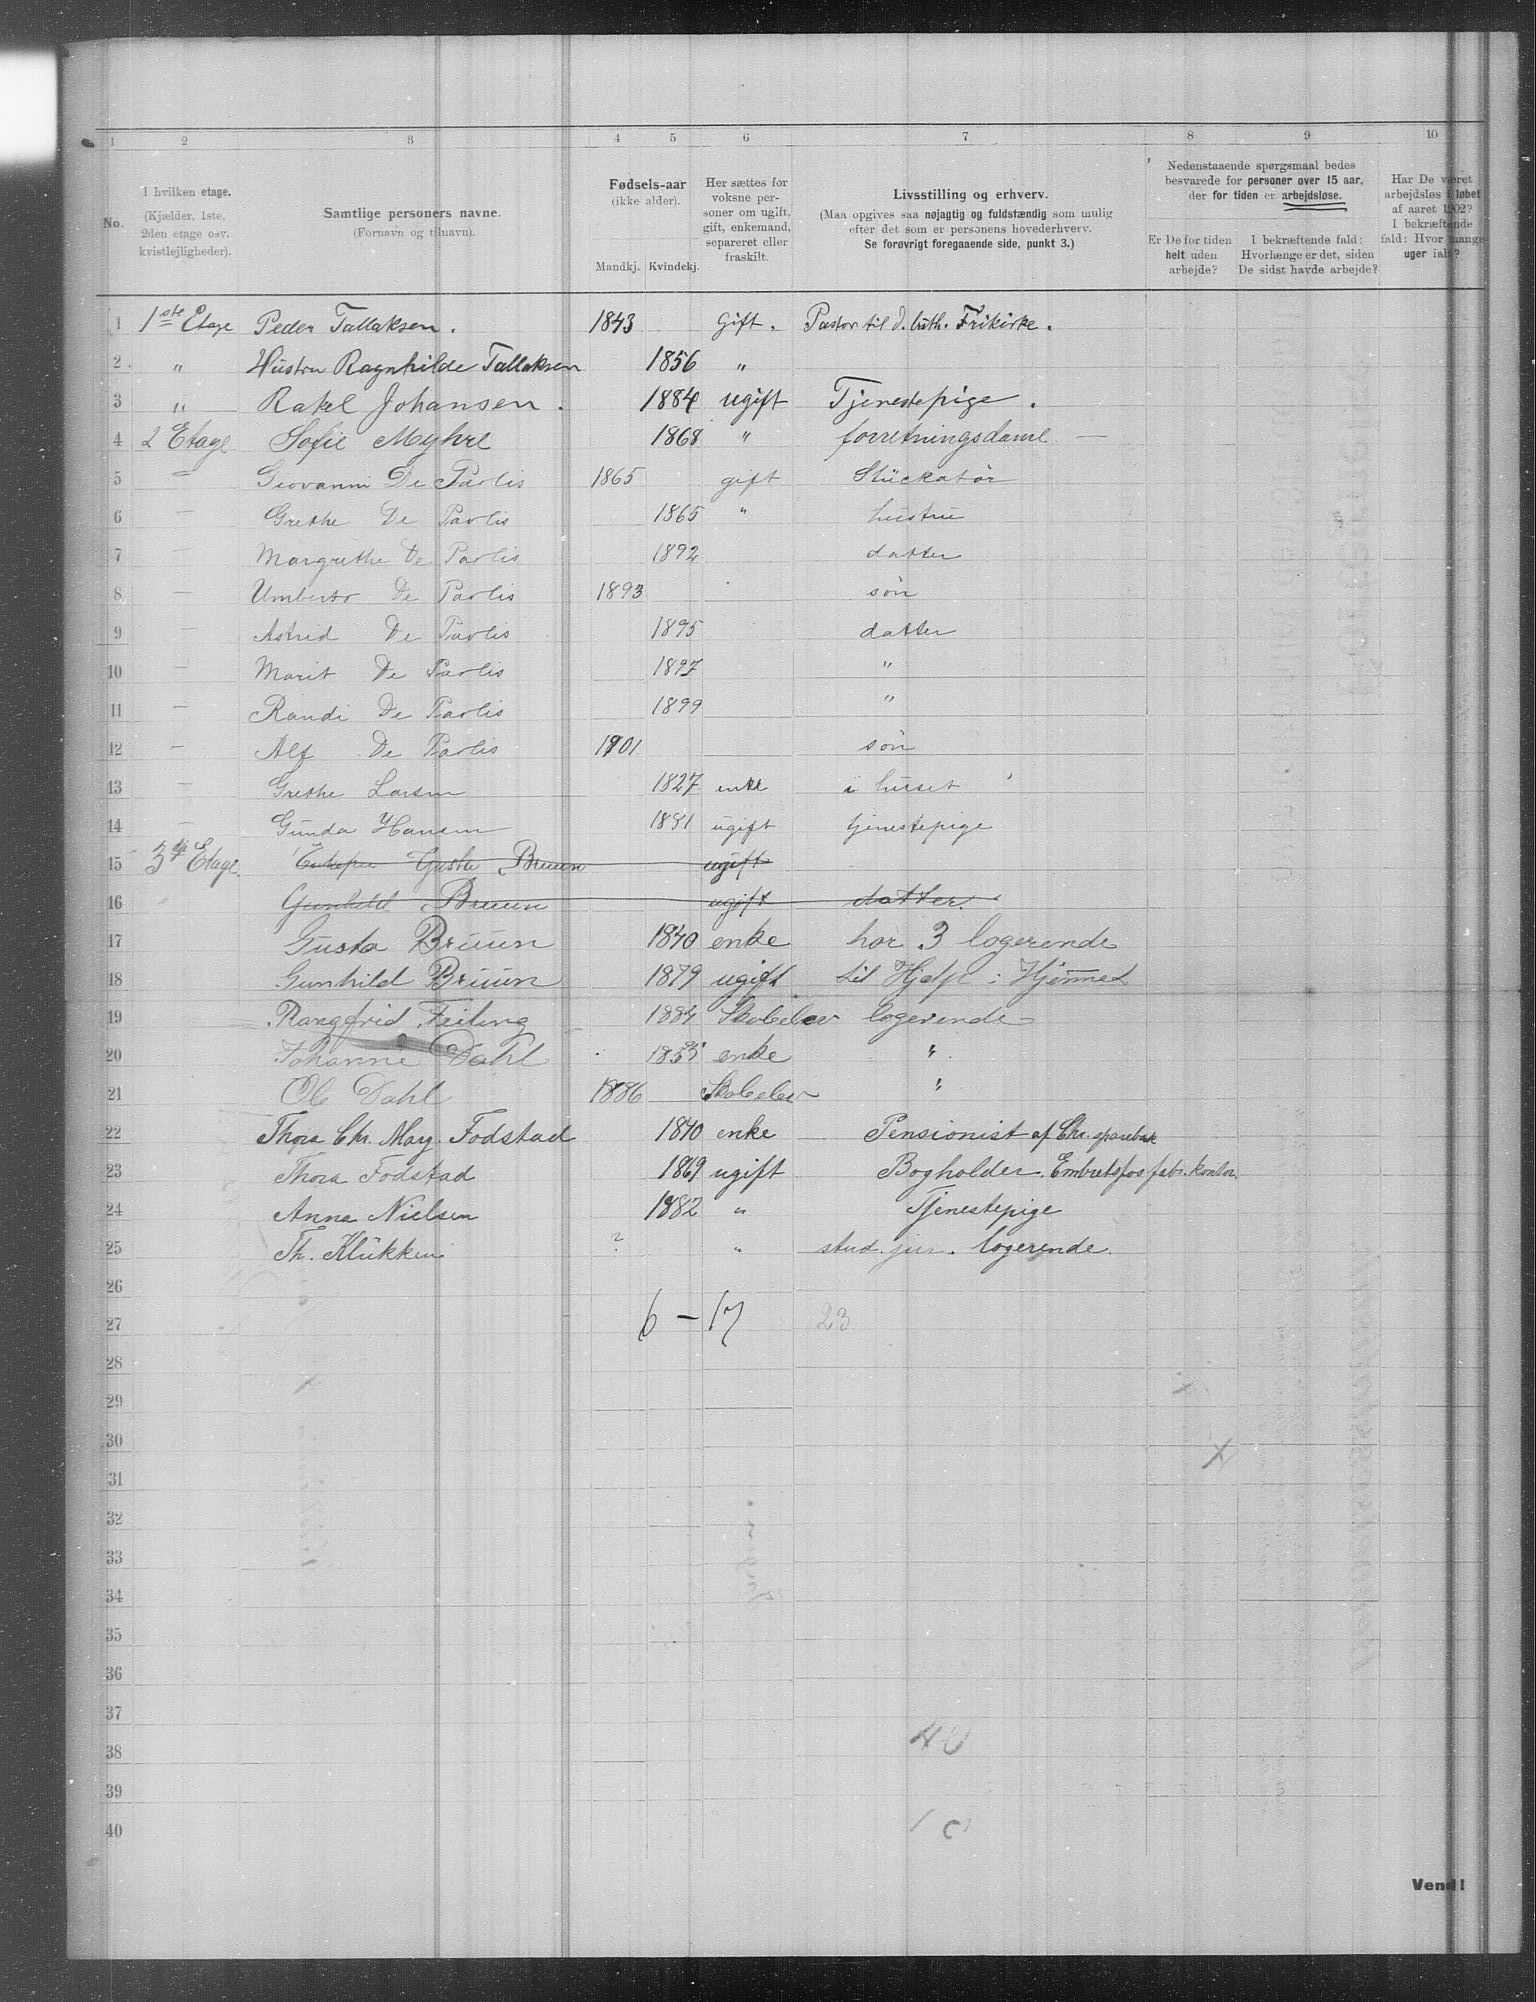 1 2 3 4 5 6 7 8 9 10
No.
I hvilken etage.
(Kjælder, 1ste, 2den etage osv. kvistlejligheder).
Samtlige personers navne.
(Fornavn og tilnavn).
Fødsels-aar
(ikke alder).
Mandkj. Kvindekj.
Her sættes for voksne personer om ugift, gift, enkemand, separeret eller fraskilt.
Livsstilling og erhverv.
(Maa opgives saa nøjagtig og fuldstændig som mulig
efter det som er personens hovederhverv.
Se forøvrigt foregaaende side, punkt 3.)
Nedenstaaende spørgsmaal bedes
besvarede for personer over 15 aar,
der for tiden er arbejdsløse.
Er De for tiden helt uden arbejde?
I bekræftende fald: Hvorlænge er det, siden De sidst havde arbejde?
Har De været arbejdsløs i løbet af aaret 1902? I bekræftende fald: Hvor mange uger ialt?
1 1ste Etage Peder Tallaksen. 1843 Gift. Pastor til d. luth. Frikirke.
2 " Hustru Ragnhilde Tallaksen 1856 "
3 " Rakel Johansen. 1884 ugift Tjenestepige.
4 2 Etage Sofie Myhre 1868 " forretningsdame —
5 — Giovanni De Paolis 1865 gift Stuckatør
6 — Grethe De Paolis 1865 " hustru
7 — Margrethe De Paolis 1892 datter
8 — Umberto De Paolis 1893 søn
9 — Astrid De Paolis 1895 datter
10 — Marit De Paolis 1897 "
11 — Randi De Paolis 1899 "
12 — Alf De Paolis 1901 søn
13 — Grethe Larsen 1827 enke i huset
14 — Gunda Hansen 1881 ugift tjenestepige
15 3die Etage. Gusta Bruun ugift
16 Gunhild Bruun ugift datter.
17 Gusta Bruun 1840 enke har 3 logerende
18 Gunhild Bruun 1879 ugift til Hjælp i Hjemmet
19 Rangfrid Feiling 1884 Skoleelev logerende
20 Johanne Dahl enke "
21 Ole Dahl 1886 Skoleelev "
22 Thora Chr. May. Fodstad 1840 enke Pensionist af Chr. sparebak
23 Thora Fodstad 1869 ugift Bogholder. kontor.
24 Anna Nielsen 1882 " Tjenestepige
25 Th. Klükken ? " stud. jur. logerende.
26
27 6 – 17 23
28
29
30
31
32
33
34
35
36
37
38 40
39
40
Vend!